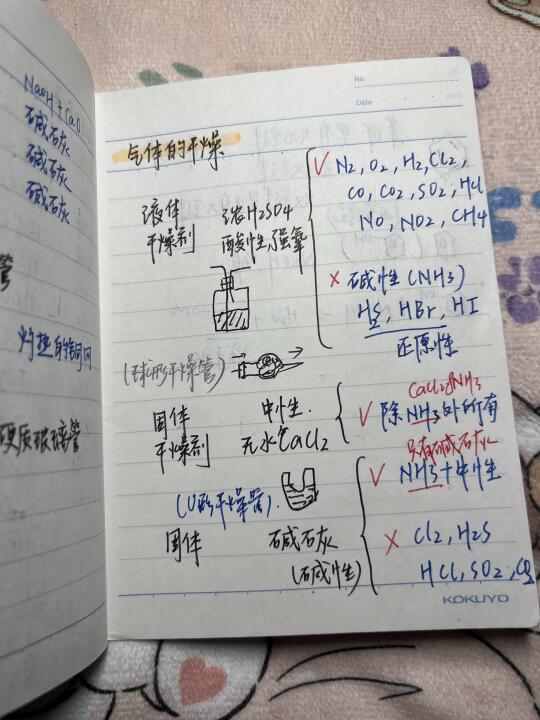 NaOH + CaO
碱石灰
碱石灰
碱石灰
管
灼热的铜网
硬质玻璃管
No.
Date
气体的干燥
液体
干燥剂
浓H2SO4
酸性,强氧
√ N2, O2, H2, Cl2,
CO, CO2, SO2, HCl
NO, NO2, CH4
× 碱性(NH3)
H2S, HBr, HI
还原性
(球形干燥管)
固体
干燥剂
中性.
无水CaCl2
CaCl2·8NH3
√ 除NH3外所有
(U形干燥管).
固体
碱石灰
(碱性)
只有碱石灰
√ NH3+中性
× Cl2, H2S
HCl, SO2, CO2
KOKUYO